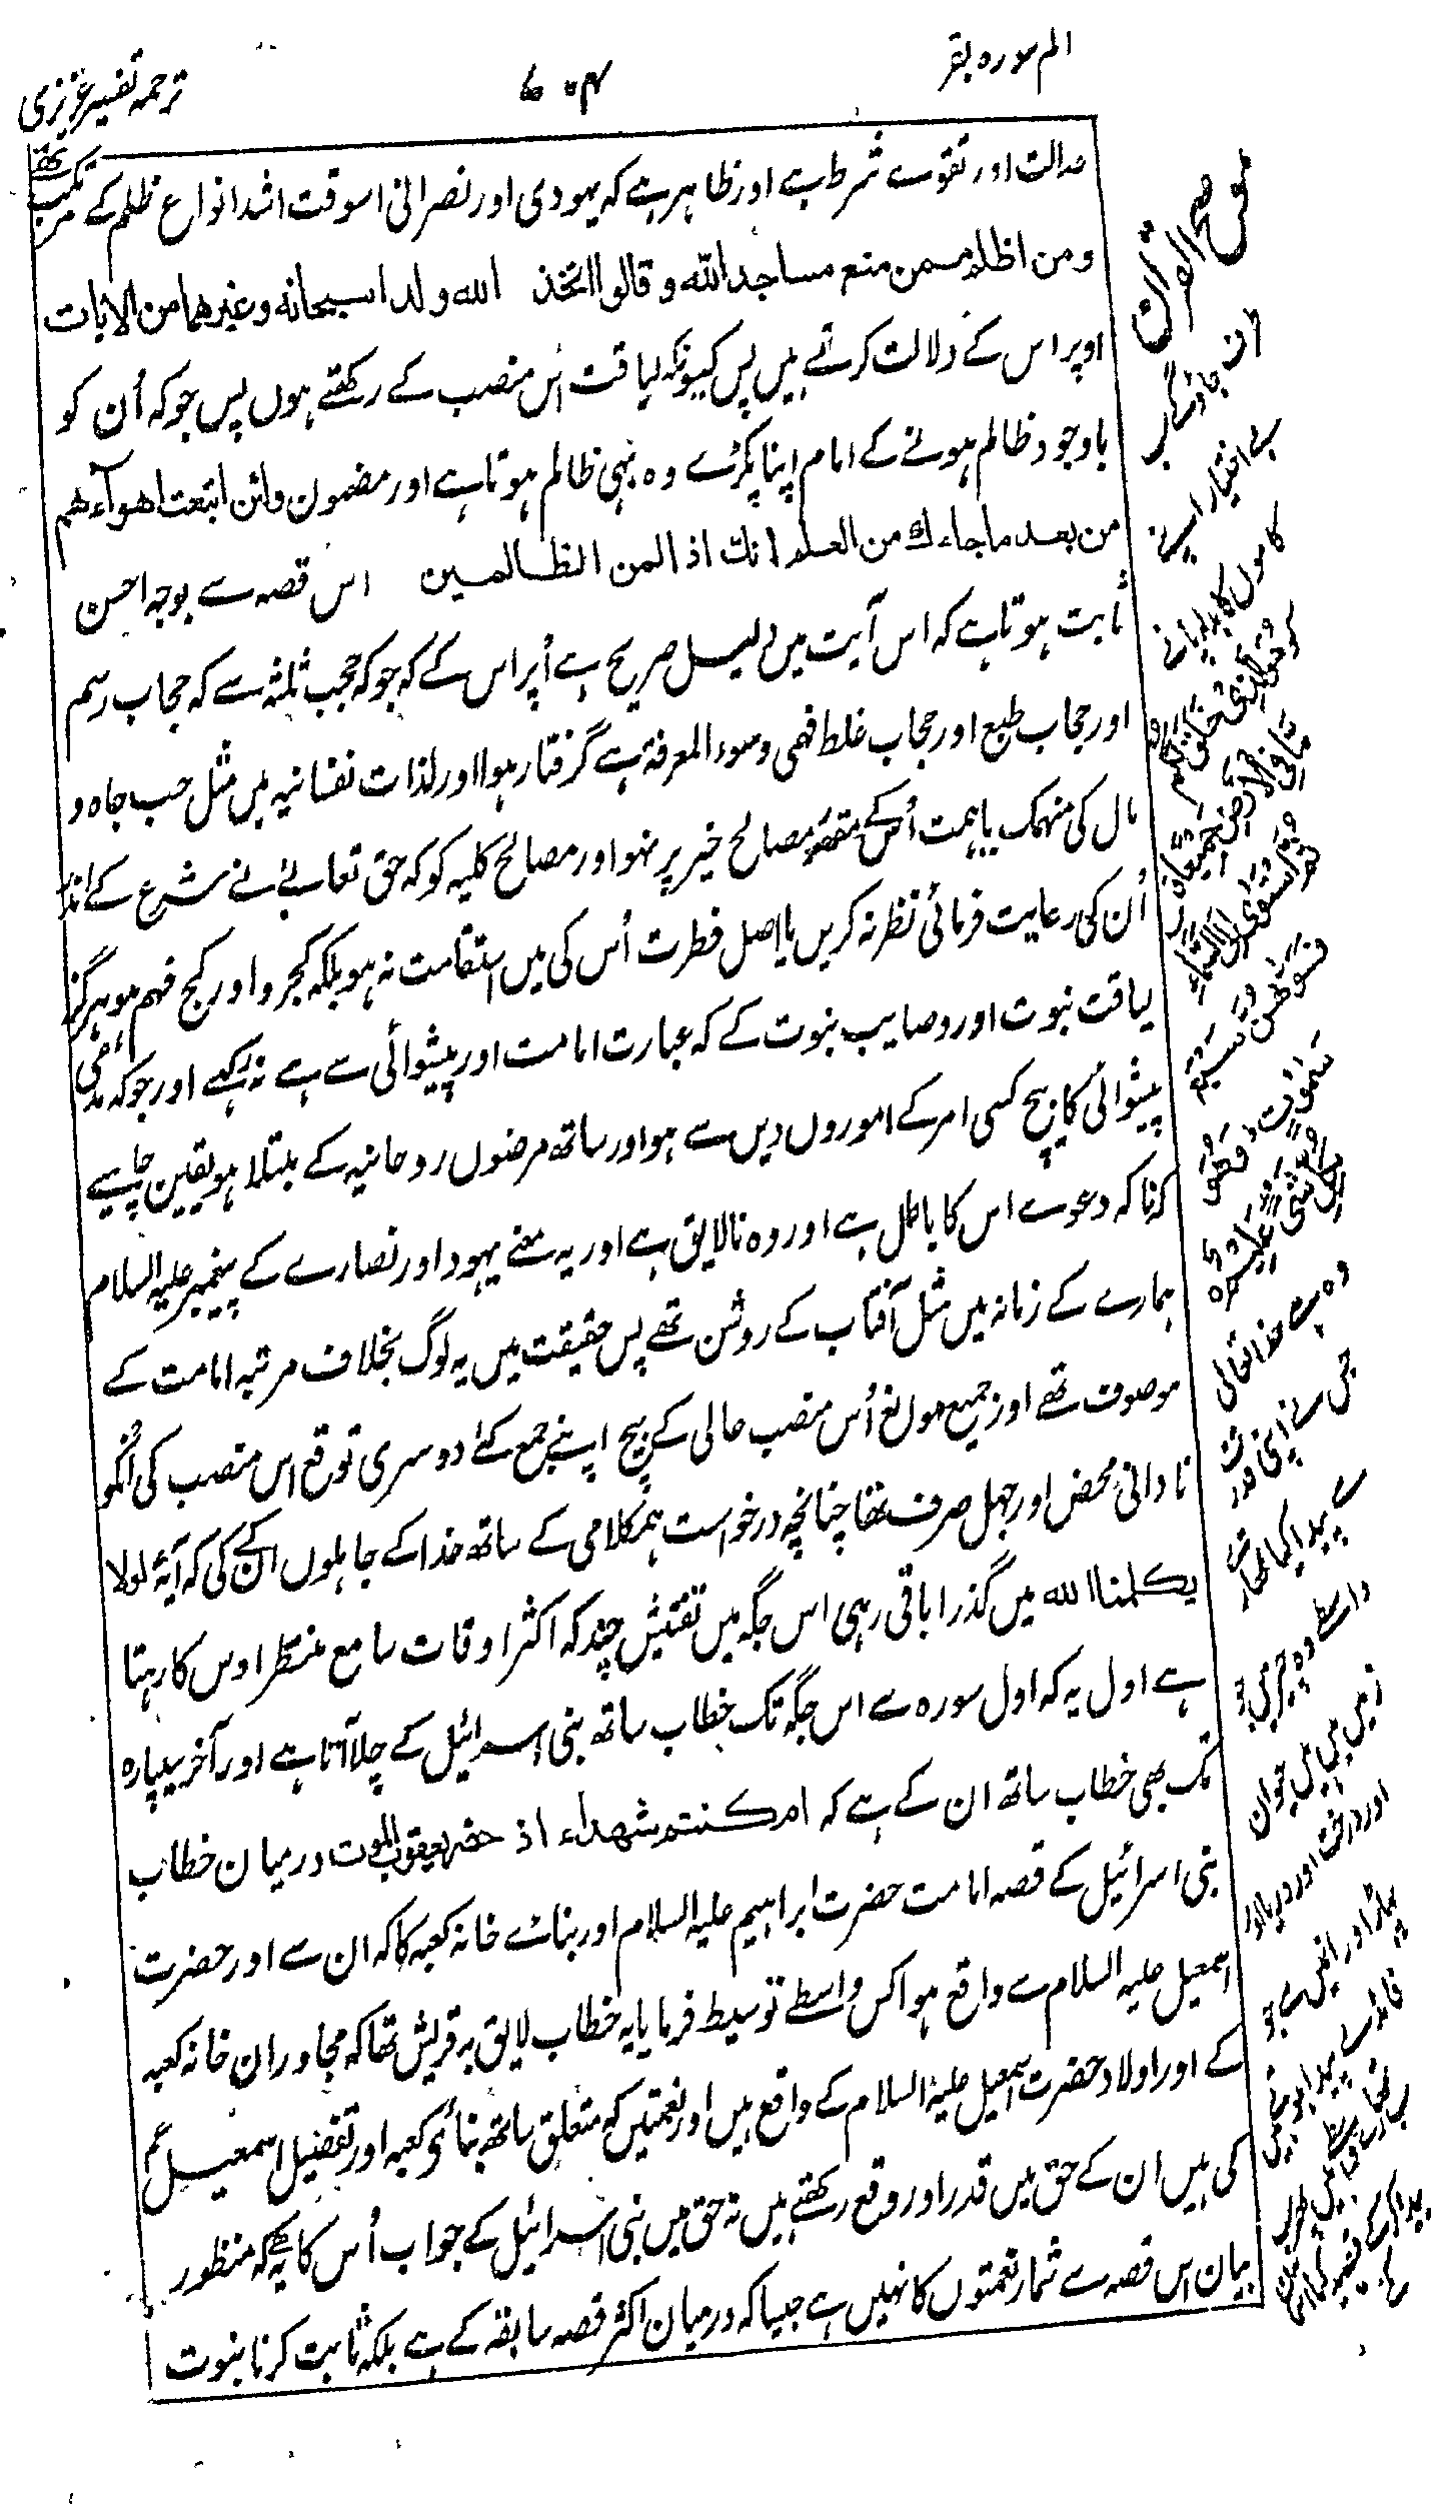 الم سورہ بقر
۷۰۴
ترجمہ تفسیر عزیزی
عدالت اور تقوے شرط ہے اور ظاہر ہے کہ یہودی اور نصرانی اسوقت اشد انواع ظلم کے مرتکب تھے
ومن اظلم ممن منع مساجد الله وقالوا اتخذ الله ولدا سبحانه وغیرهما من الایات
اوپر اس کے دلالت کرتے ہیں پس کیونکہ لیاقت اس منصب کے رکھتے ہوں پس جو کہ اُن کو
باوجود ظالم ہونے کے امام اپنا پکڑے وہ بھی ظالم ہوتا ہے اور مضمون ولئن اتبعت اهوآءهم
من بعد ما جاءك من العلم انك اذا لمن الظالمین اس قصہ سے بوجہ احسن
ثابت ہوتا ہے کہ اس آیت میں دلیل صریح ہے اُپر اس کے کہ جو کہ حجب ثلثہ سے کہ حجاب رسم
اور حجاب طبع اور حجاب غلط فہمی وسوء المعرفۃ ہے گرفتار ہوا اور لذات نفسانیہ میں مثل حب جاہ و
مال کی منہمک یا ہمت اُسکے مقصر مصالح خیر پر نہو اور مصالح کلیہ کو کہ حق تعالے نے شرع کے اندر
اُن کی رعایت فرمائی نظر نہ کریں یا اصل فطرت اُس کی میں استقامت نہ ہو بلکہ کجرو اور کج فہم ہو ہرگز
لیاقت نبوت اور وصایب نبوت کے کہ عبارت امامت اور پیشوائی سے ہے نہ رکھے اور جو کہ مدعی
پیشوائی کا بیچ کسی امر کے اموروں دیں سے ہو اور ساتھ مرضوں روحانیہ کے مبتلا ہو یقین چاہیے
کرنا کہ دعوے اس کا باطل ہے اور وہ نالایق ہے اور یہ معنے یہود اور نصارے کے پیغمبر علیہ السلام
ہمارے کے زمانہ میں مثل آفتاب کے روشن تھے پس حقیقت میں یہ لوگ بخلاف مرتبہ امامت کے
موصوف تھے اور جمیع موانع اُس منصب عالی کے بیچ اپنے جمع کئے دوسری توقع اس منصب کی اُنکو
نادانی محض اور جہل صرف تھا چنانچہ درخواست ہمکلامی کے ساتھ خدا کے جاہلوں انکے کی کہ آیۂ لولا
یکلمنا الله میں گذرا باقی رہی اس جگہ میں تفتیش چند کہ اکثر اوقات سامع منتظر اوس کا رہتا
ہے اول یہ کہ اول سورہ سے اس جگہ تک خطاب ساتھ بنی اسرائیل کے چلا آتا ہے اور آخر سیپارہ
تک بھی خطاب ساتھ ان کے ہے کہ ام كنتم شهداء اذ حضر یعقوب الموت درمیان خطاب
بنی اسرائیل کے قصہ امامت حضرت ابراہیم علیہ السلام اور بنائے خانہ کعبہ کا کہ ان سے اور حضرت
اسمعیل علیہ السلام سے واقع ہوا کس واسطے توسیط فرمایا یہ خطاب لایق بہ قریش تھا کہ مجاوران خانہ کعبہ
کے اور اولاد حضرت اسمعیل علیہ السلام کے واقع ہیں اور نعمتیں کہ متعلق ساتھ بنائے کعبہ اور تفضیل اسمعیل ع
کی ہیں ان کے حق میں قدر اور وقع رکھتے ہیں نہ حق میں بنی اسرائیل کے جواب اُس کا یہ ہے کہ منظور
بیان اس قصہ سے شمار نعمتوں کا نہیں ہے جیسا کہ درمیان اکثر قصہ سابقہ کے ہے بلکہ ثابت کرنا نبوت
موضح القرآن
بے اختیار
کاموں کا بدلہ پانے
کو هُوَ الَّذِیْ خَلَقَ لَكُمْ
مَّا فِی الْاَرْضِ جَمِیْعًا
ثُمَّ اسْتَوٰٓى اِلَى السَّمَآءِ
فَسَوّٰىهُنَّ سَبْعَ
سَمٰوٰتٍ وَهُوَ
بِكُلِّ شَیْءٍ عَلِیْمٌ
وہ ہے خدا تعالی
جس نے اپنی قدرت
سے پیدا کیا تمھارے
واسطے وہ چیزیں جو
زمین میں ہیں حیوان
اور درخت اور دریا اور
پہاڑ اور